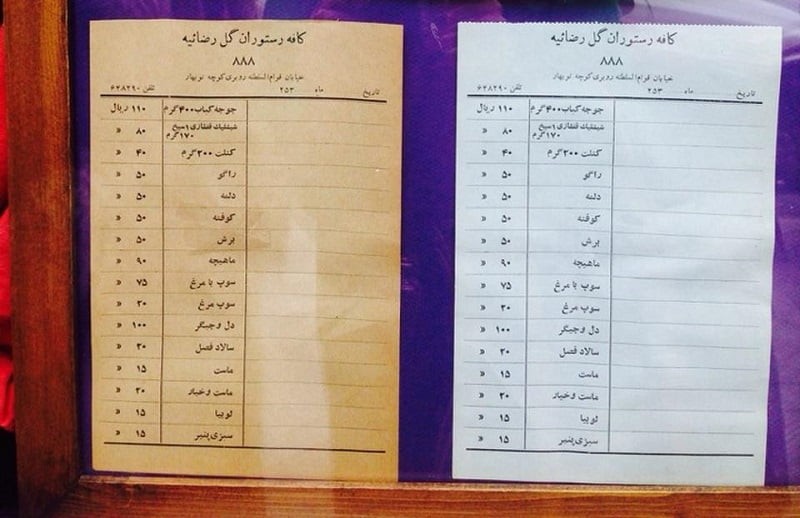 کافه رستوران گل رضائیه
۸۸۸
خیابان قوام‌السلطنه روبروی کوچه نوبهار
تاریخ ماه ۲۵۳ تلفن ۶۴۸۲۹۰
جوجه کباب ۴۰۰ گرم ۱۱۰ ریال
شیشلیک قفقازی ۱ سیخ ۱۷۰ گرم ۸۰ »
کتلت ۲۰۰ گرم ۴۰ »
راگو ۵۰ »
دلمه ۵۰ »
کوفته ۵۰ »
برش ۵۰ »
ماهیچه ۹۰ »
سوپ با مرغ ۷۵ »
سوپ مرغ ۳۰ »
دل و جیگر ۱۰۰ »
سالاد فصل ۲۰ »
ماست ۱۵ »
ماست و خیار ۲۰ »
لوبیا ۱۵ »
سبزی پنیر ۱۵ »
کافه رستوران گل رضائیه
۸۸۸
خیابان قوام‌السلطنه روبروی کوچه نوبهار
تاریخ ماه ۲۵۳ تلفن ۶۴۸۲۹۰
جوجه کباب ۴۰۰ گرم ۱۱۰ ریال
شیشلیک قفقازی ۱ سیخ ۱۷۰ گرم ۸۰ »
کتلت ۲۰۰ گرم ۴۰ »
راگو ۵۰ »
دلمه ۵۰ »
کوفته ۵۰ »
برش ۵۰ »
ماهیچه ۹۰ »
سوپ با مرغ ۷۵ »
سوپ مرغ ۳۰ »
دل و جیگر ۱۰۰ »
سالاد فصل ۲۰ »
ماست ۱۵ »
ماست و خیار ۲۰ »
لوبیا ۱۵ »
سبزی پنیر ۱۵ »